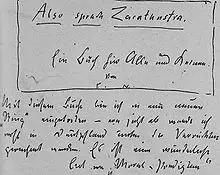 Also sprach Zarathustra.
Ein Buch für Alle und Keinen.
von
Mit diesem Buche bin ich in einen neuen
„Ring“ eingetreten – von jetzt ab werde ich
wohl in Deutschland unter die Verrückten
gerechnet werden. Es ist eine wunderliche
Art von „Moral-Predigten“